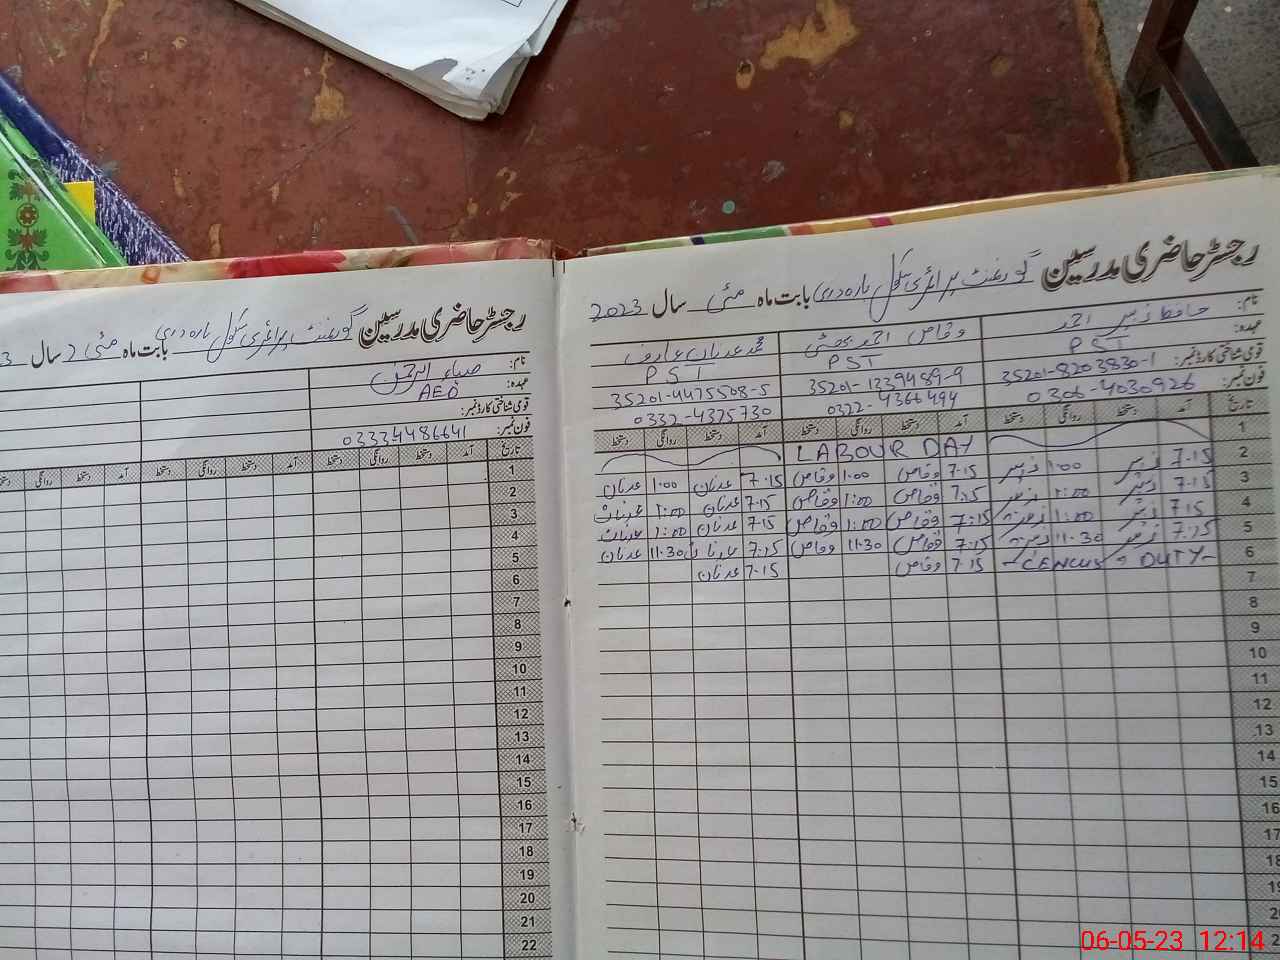 رجسٹر حاضری مدرسین گورنمنٹ پرائمری سکول بارہ دری بابت ماہ مئی سال 2023
نام: حافظ زبیر احمد وقاص احمد بھٹی محمد عدنان عارف
عہدہ: PST PST PST
قومی شناختی کارڈ نمبر: 35201-8203830-1 35201-1339489-9 35201-4475508-5
فون نمبر: 0306-4030926 0322-4366494 0332-4325730
تاریخ آمد دستخط روانگی دستخط آمد دستخط روانگی دستخط آمد دستخط روانگی دستخط
1 LABOUR DAY
2 7.15 زبیر 1:00 زبیر 7.15 وقاص 1:00 وقاص 7.15 عدنان 1:00 عدنان
3 7.15 زبیر 1:00 زبیر 7.15 وقاص 1:00 وقاص 7.15 عدنان 1:00 عدنان
4 7.15 زبیر 1:00 زبیر 7:15 وقاص 1:00 وقاص 7.15 عدنان 1:00 عدنان
5 7.15 زبیر 11.30 زبیر 7.15 وقاص 11.30 وقاص 7.15 عدنان 11.30 عدنان
6 CENCUS DUTY 7.15 وقاص 7.15 عدنان
7
8
9
10
11
12
13
14
15
16
17
18
19
رجسٹر حاضری مدرسین گورنمنٹ پرائمری سکول بارہ دری بابت ماہ مئی سال
نام: ضیاء الرحمٰن
عہدہ: AEO
قومی شناختی کارڈ نمبر:
فون نمبر: 03334486641
تاریخ آمد دستخط روانگی دستخط آمد دستخط روانگی دستخط آمد دستخط روانگی دستخط
1
2
3
4
5
6
7
8
9
10
11
12
13
14
15
16
17
18
19
20
21
22
06-05-23 12:14